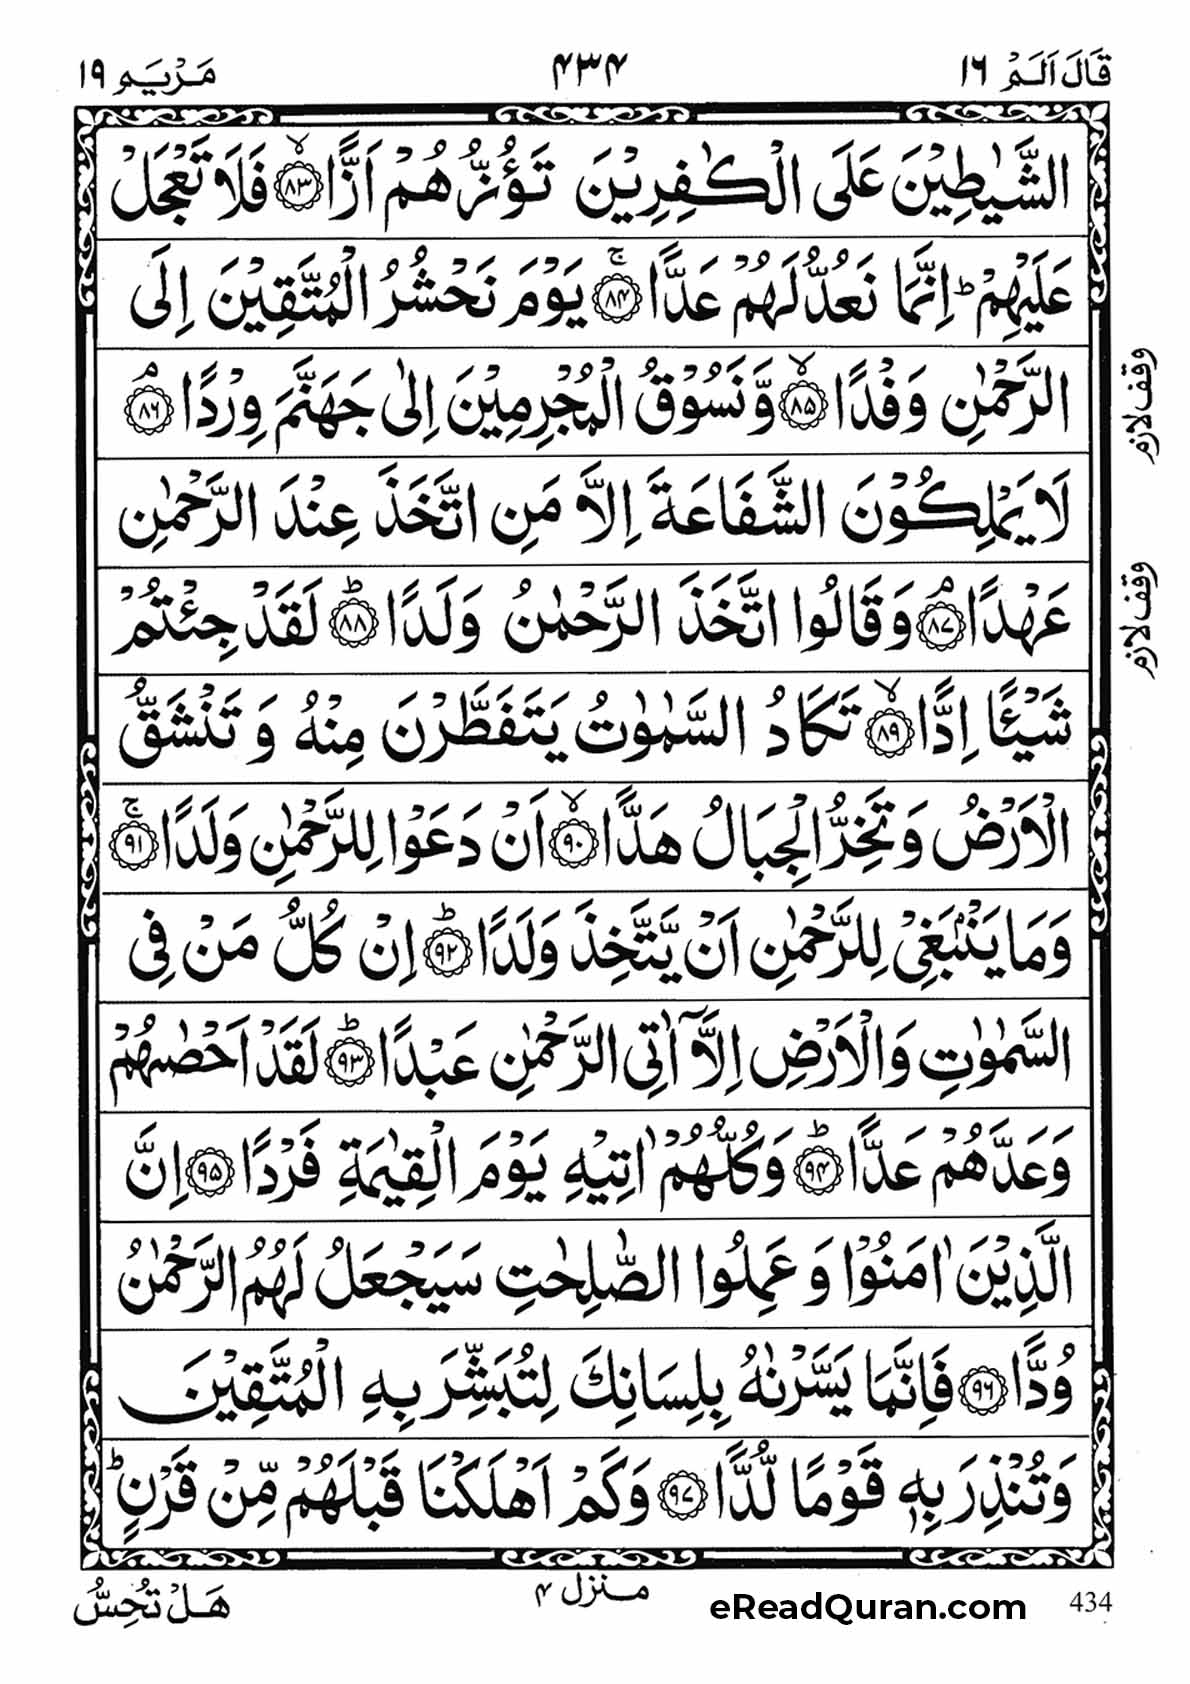 قَالَ اَلَمْ ١٦ ۴۳۴ مَرْيَم ١٩
الشَّيٰطِيْنَ عَلَى الْكٰفِرِيْنَ تَؤُزُّهُمْ اَزًّا ۙ‏﴿۸۳﴾ فَلَا تَعْجَلْ
عَلَيْهِمْ ؕ اِنَّمَا نَعُدُّ لَهُمْ عَدًّا ۚ‏﴿۸۴﴾ يَوْمَ نَحْشُرُ الْمُتَّقِيْنَ اِلَى
الرَّحْمٰنِ وَفْدًا ۙ‏﴿۸۵﴾ وَّنَسُوْقُ الْمُجْرِمِيْنَ اِلٰى جَهَنَّمَ وِرْدًا ۘ‏﴿۸۶﴾
وقف لازم
لَا يَمْلِكُوْنَ الشَّفَاعَةَ اِلَّا مَنِ اتَّخَذَ عِنْدَ الرَّحْمٰنِ
عَهْدًا ۘ‏﴿۸۷﴾ وَقَالُوا اتَّخَذَ الرَّحْمٰنُ وَلَدًا ؕ‏﴿۸۸﴾ لَقَدْ جِئْتُمْ
وقف لازم
شَيْـًٔا اِدًّا ۙ‏﴿۸۹﴾ تَكَادُ السَّمٰوٰتُ يَتَفَطَّرْنَ مِنْهُ وَ تَنْشَقُّ
الْاَرْضُ وَ تَخِرُّ الْجِبَالُ هَدًّا ۙ‏﴿۹۰﴾ اَنْ دَعَوْا لِلرَّحْمٰنِ وَلَدًا ۚ‏﴿۹۱﴾
وَمَا يَنْۢبَغِيْ لِلرَّحْمٰنِ اَنْ يَّتَّخِذَ وَلَدًا ؕ‏﴿۹۲﴾ اِنْ كُلُّ مَنْ فِي
السَّمٰوٰتِ وَالْاَرْضِ اِلَّاۤ اٰتِي الرَّحْمٰنِ عَبْدًا ؕ‏﴿۹۳﴾ لَقَدْ اَحْصٰىهُمْ
وَعَدَّهُمْ عَدًّا ؕ‏﴿۹۴﴾ وَكُلُّهُمْ اٰتِيْهِ يَوْمَ الْقِيٰمَةِ فَرْدًا ﴿۹۵﴾ اِنَّ
الَّذِيْنَ اٰمَنُوْا وَ عَمِلُوا الصّٰلِحٰتِ سَيَجْعَلُ لَهُمُ الرَّحْمٰنُ
وُدًّا ﴿۹۶﴾ فَاِنَّمَا يَسَّرْنٰهُ بِلِسَانِكَ لِتُبَشِّرَ بِهِ الْمُتَّقِيْنَ
وَتُنْذِرَ بِهٖ قَوْمًا لُّدًّا ﴿۹۷﴾ وَكَمْ اَهْلَكْنَا قَبْلَهُمْ مِّنْ قَرْنٍ ؕ
434 eReadQuran.com منزل ۴ هَلْ تُحِسُّ